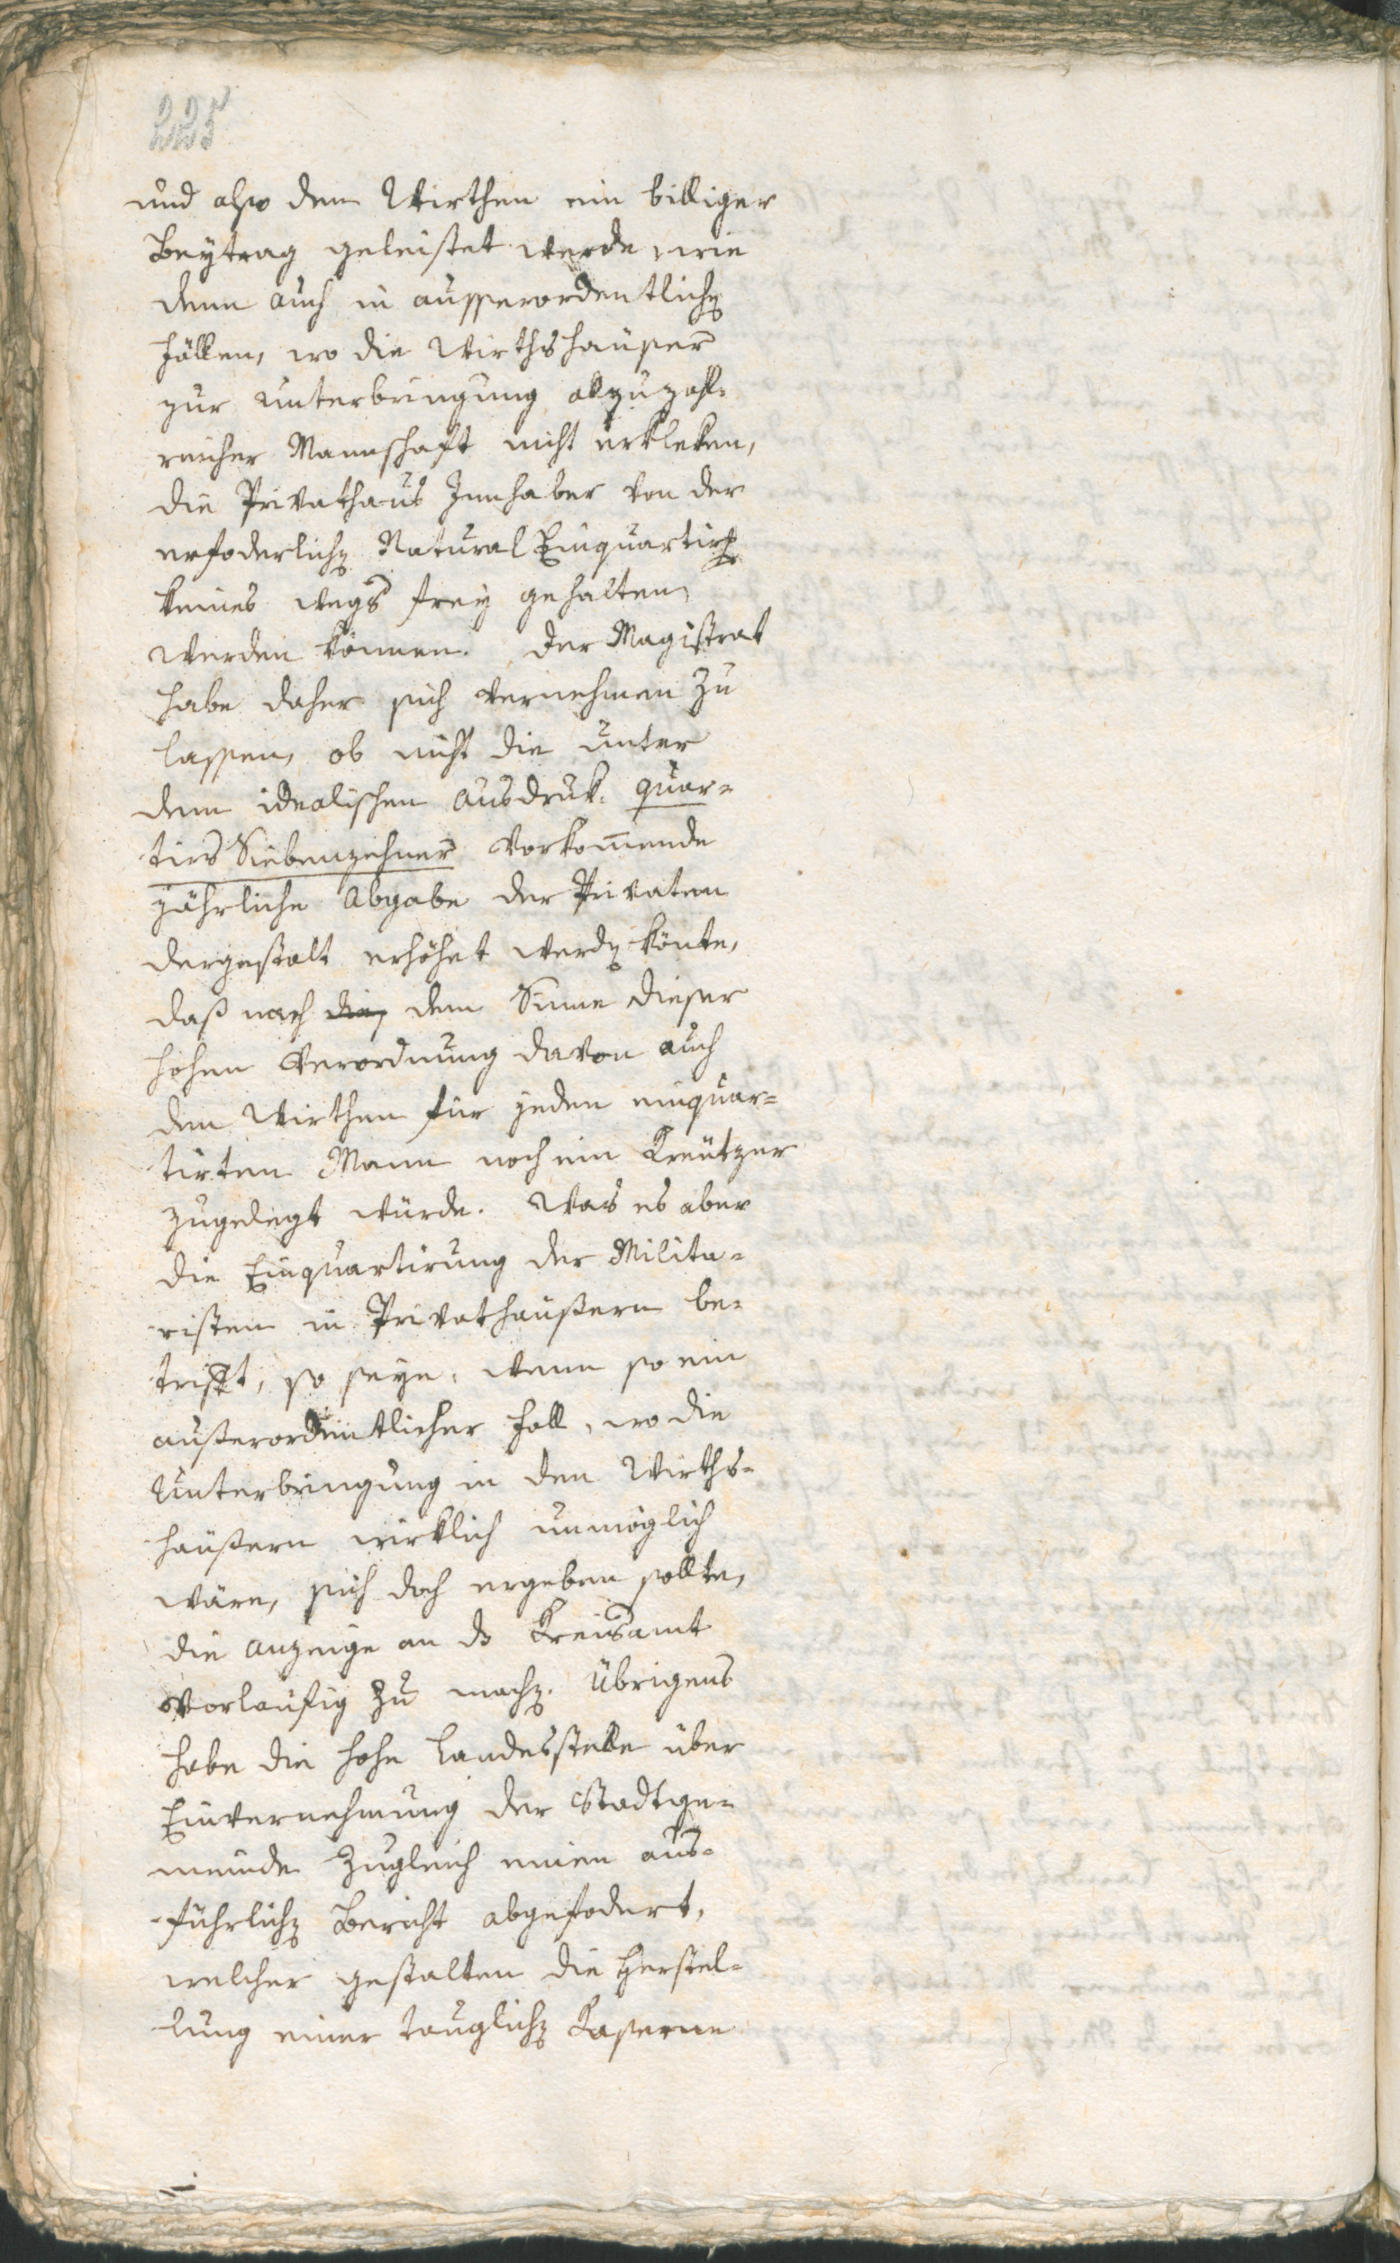 225
und also dem Wirthen ein billiger
Beytrag geleistet werde, wie
denn auch in ausserordentlichen
Fällen, wo die Wirthshäuser
zur Unterbringung allzuzahl-
reicher Mannschaft nicht erkleken,
die Privathaus Innhaber von der
erfoderlichen Natural Einquartirung
keines wegs frey gehalten
werden können. Der Magistrat
habe daher sich vernehmen zu
lassen, ob nicht die unter
dem idealischen Ausdruk: quar-
tirs Siebenzehner vorkom̅ende
jährliche Abgabe der Privaten
dergestalt erhöhet werden könte,
daß nach dem Sinne dieser
hohen Verordnung davon auch
den Wirthen für jeden einquar=
tirten Mann noch ein Kreutzer
zugelegt würde. Was es aber
die Einquartirung der Milita-
risten in Privathäußern be-
trifft, so seye, wenn so ein
außerordentlicher Fall, wo die
Unterbringung in den Wirths-
häußern wirklich unmöglich
wäre, sich doch ergeben sollte,
die Anzeige an das Kreisamt
vorläufig zu machen. Übrigens
habe die hohe Landesstelle über
Einvernehmung der Stadtge-
meinde zugleich einen aus-
führlichen Bericht abgefodert,
welcher gestalten die Herstel-
lung einer tauglichen Kaserne